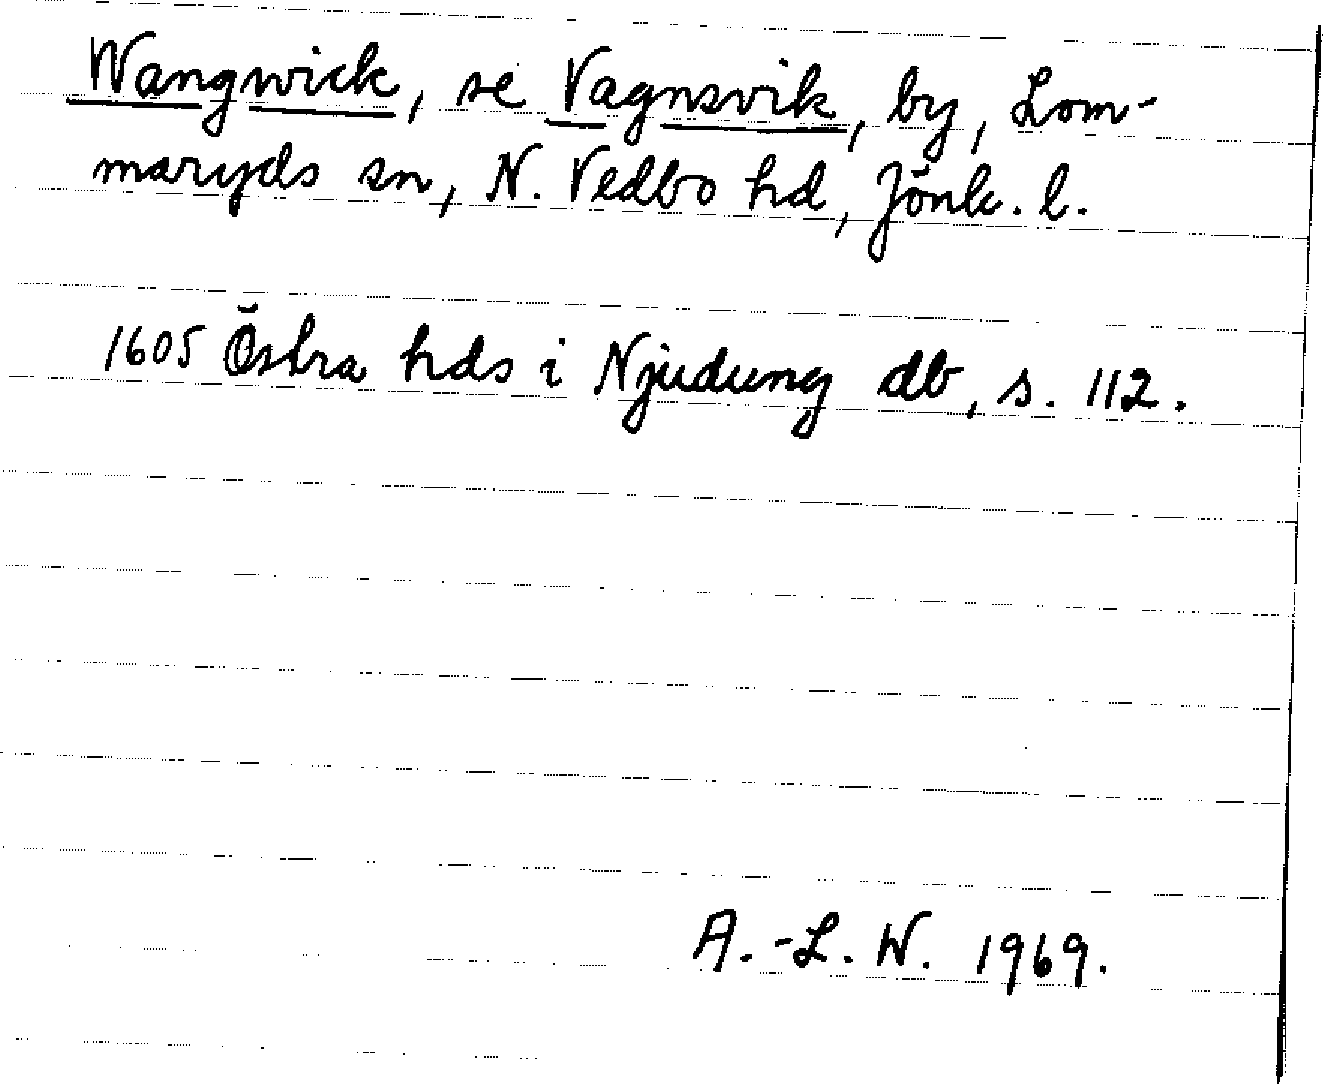 Wangwick, se Vagnsvik, by, Lom-
maryds sn, N. Vedbo hd, Jönk. l.
1605 Östra hds i Njudung db, s. 112.
A.-L. W. 1969.